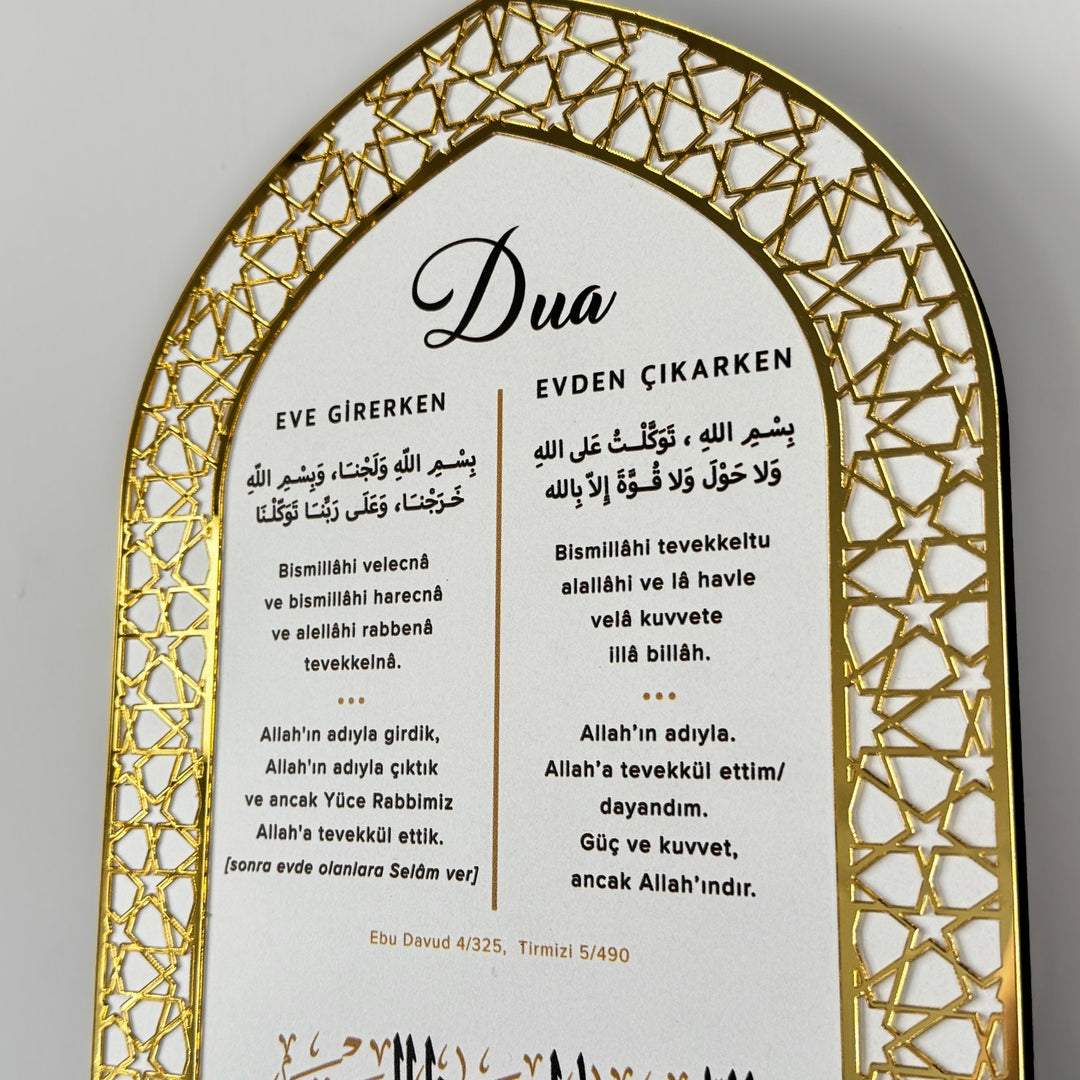 Dua
EVE GİRERKEN
بِسْمِ اللّٰهِ وَلَجْنَا، وَبِسْمِ اللّٰهِ
خَرَجْنَا، وَعَلَى رَبِّنَا تَوَكَّلْنَا
Bismillâhi velecnâ
ve bismillâhi harecnâ
ve alellâhi rabbenâ
tevekkelnâ.
•••
Allah'ın adıyla girdik,
Allah'ın adıyla çıktık
ve ancak Yüce Rabbimiz
Allah'a tevekkül ettik.
[sonra evde olanlara Selâm ver]
EVDEN ÇIKARKEN
بِسْمِ اللهِ ، تَوَكَّلْتُ عَلى اللهِ
وَلا حَوْلَ وَلا قُوَّةَ إِلاّ بِالله
Bismillâhi tevekkeltu
alallâhi ve lâ havle
velâ kuvvete
illâ billâh.
•••
Allah'ın adıyla.
Allah'a tevekkül ettim/
dayandım.
Güç ve kuvvet,
ancak Allah'ındır.
Ebu Davud 4/325, Tirmizi 5/490